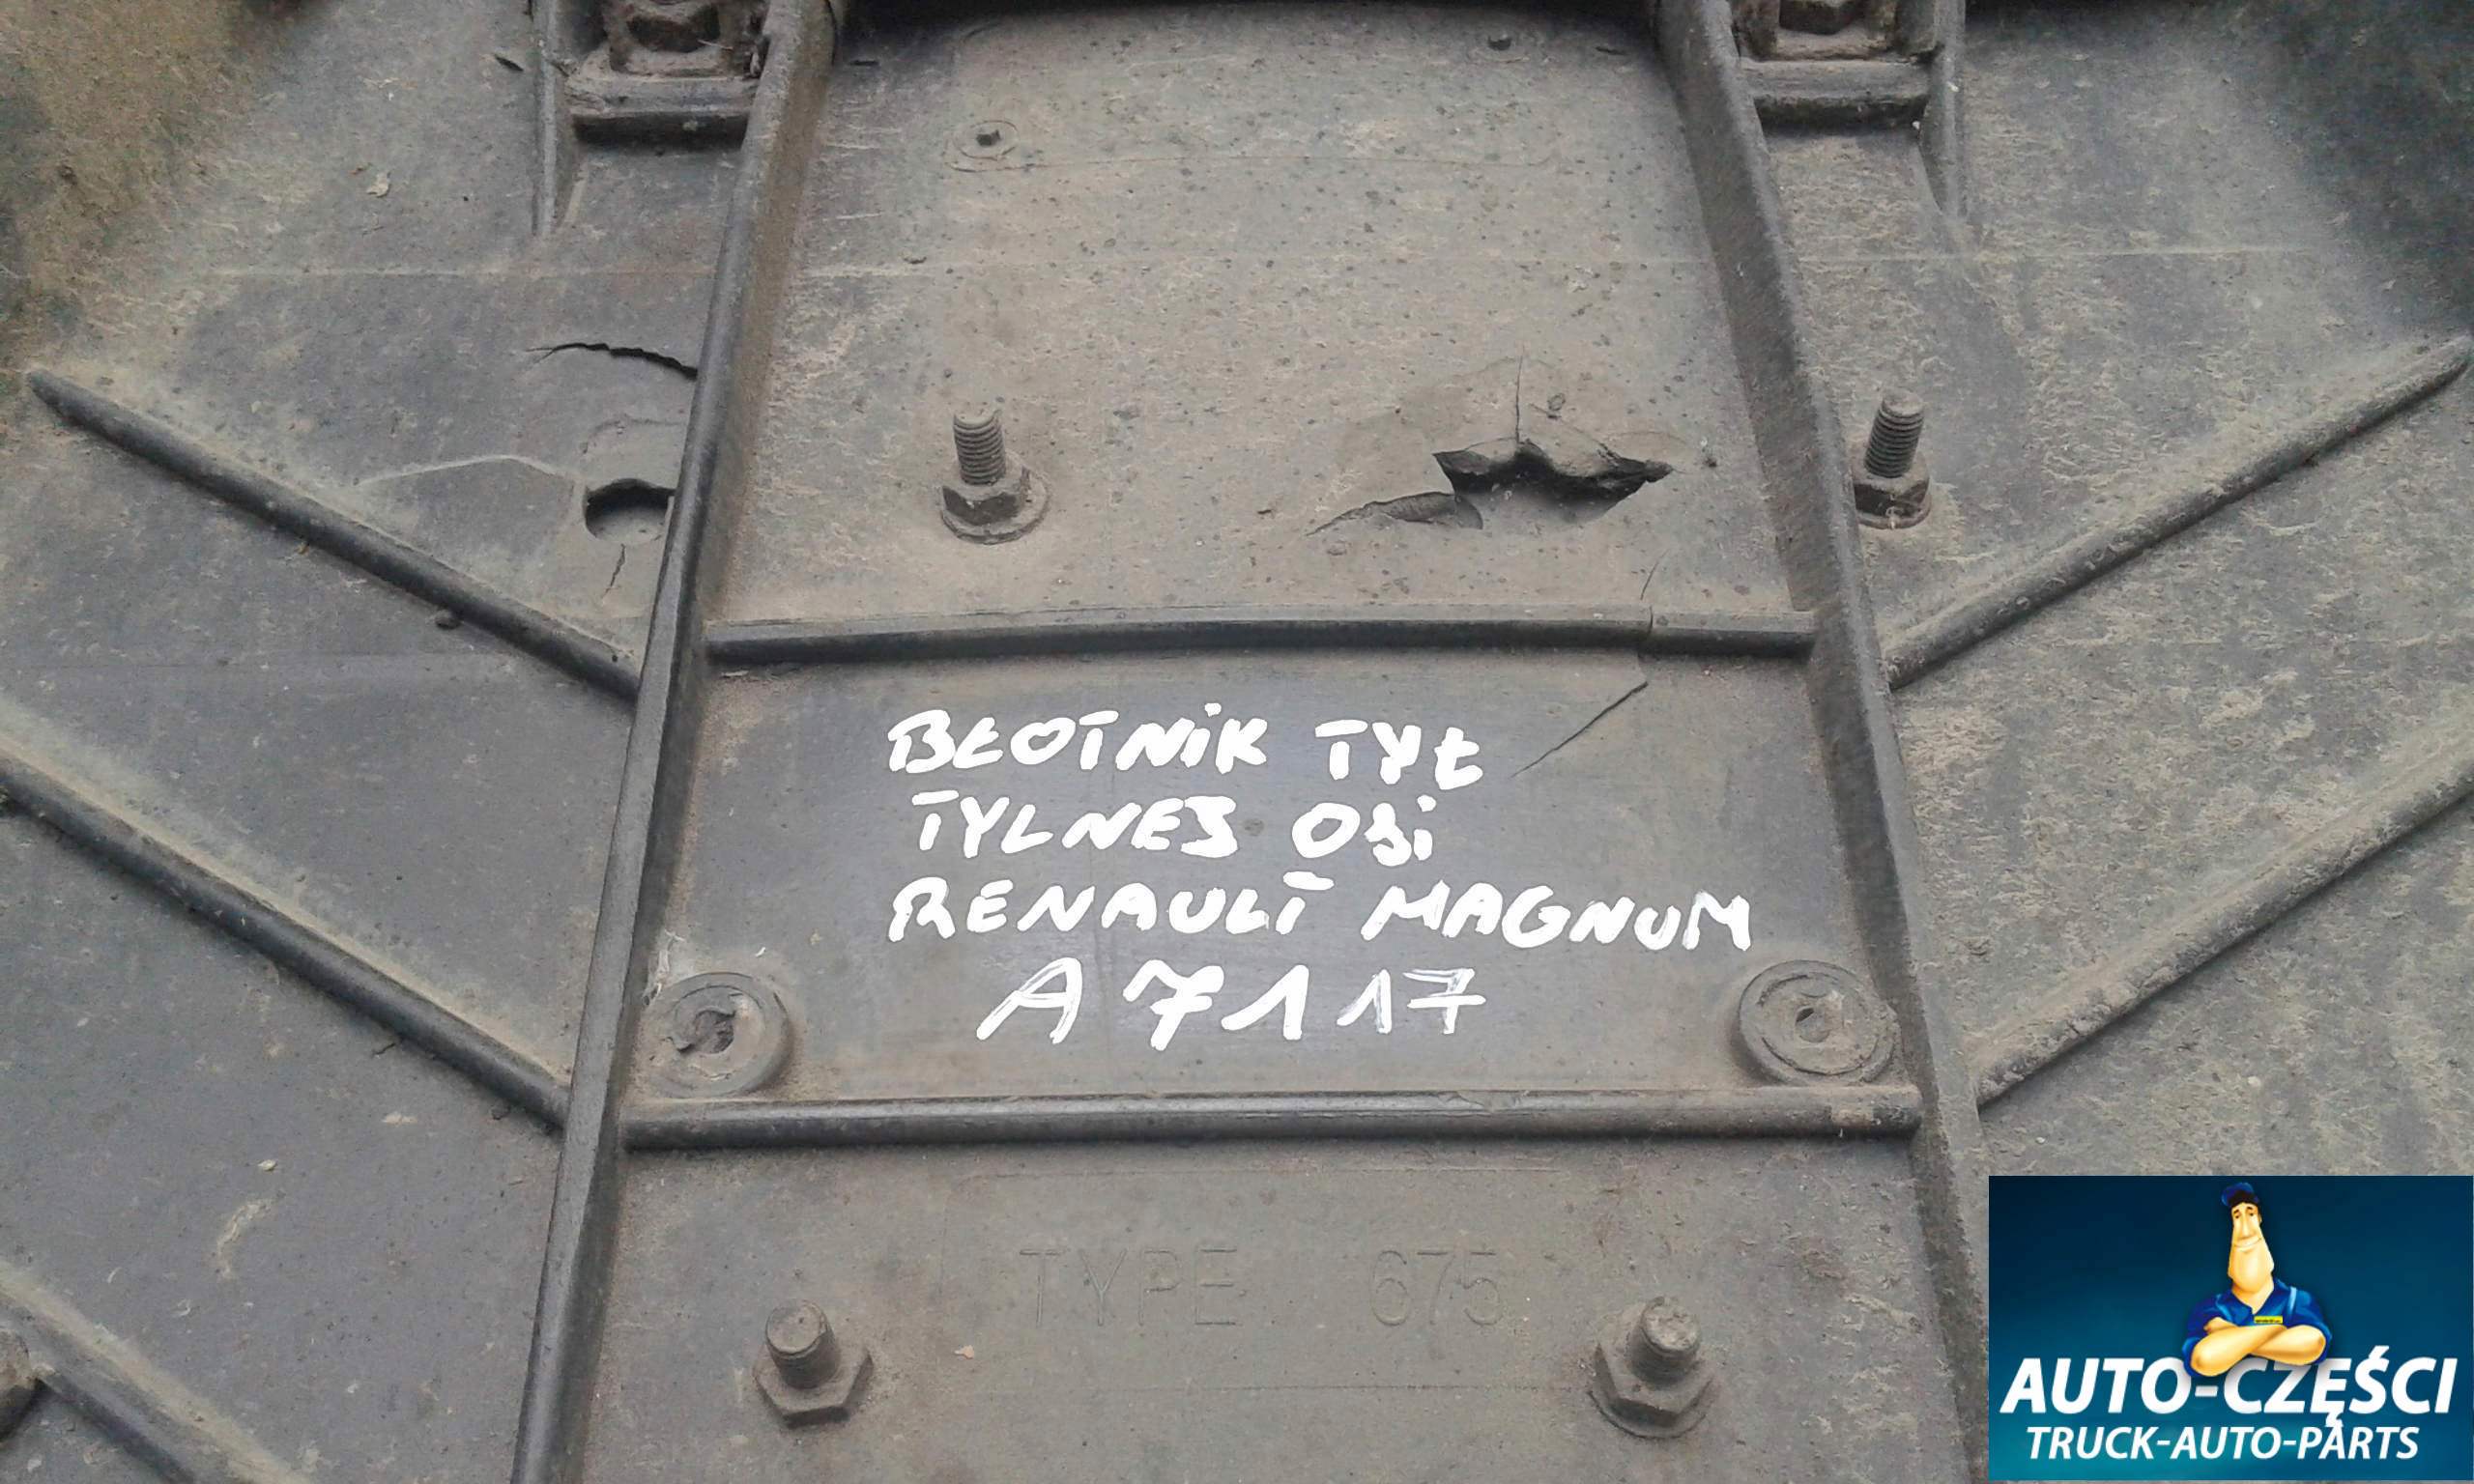 BŁOTNiK TYŁ
TYLNEJ OSi
RENAULT MAGNUM
A7117
TYPE 675
AUTO-CZĘŚCI
TRUCK-AUTO-PARTS